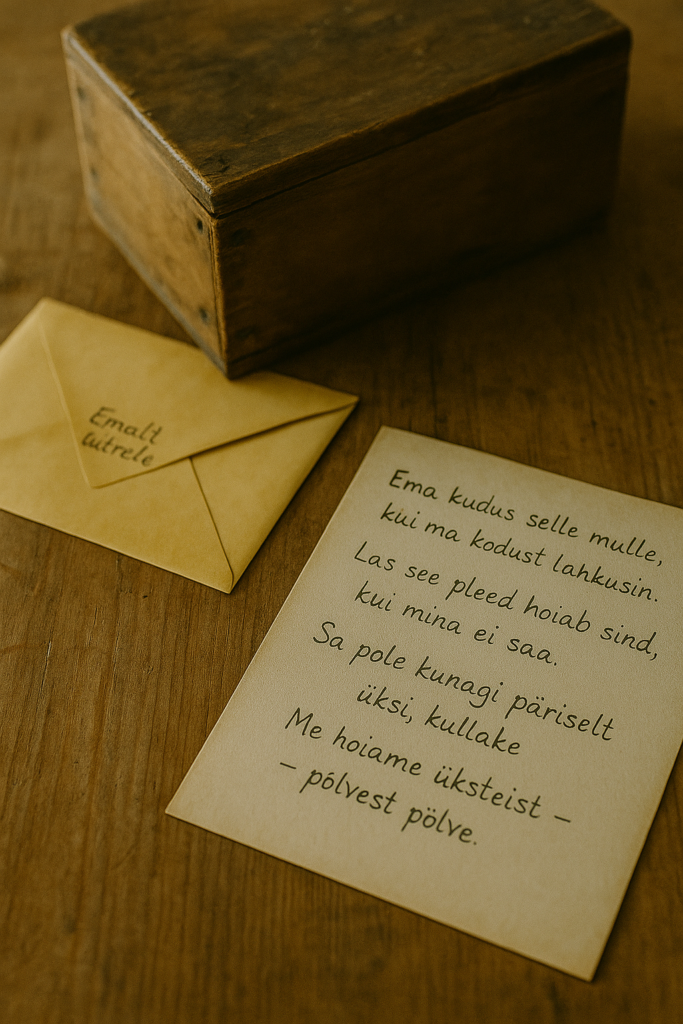 Emalt
tutrele
Ema kudus selle mulle,
kui ma kodust lahkusin.
Las see pleed hoiab sind,
kui mina ei saa.
Sa pole kunagi päriselt
üksi, kullake
Me hoiame üksteist –
– pólvest pölve.